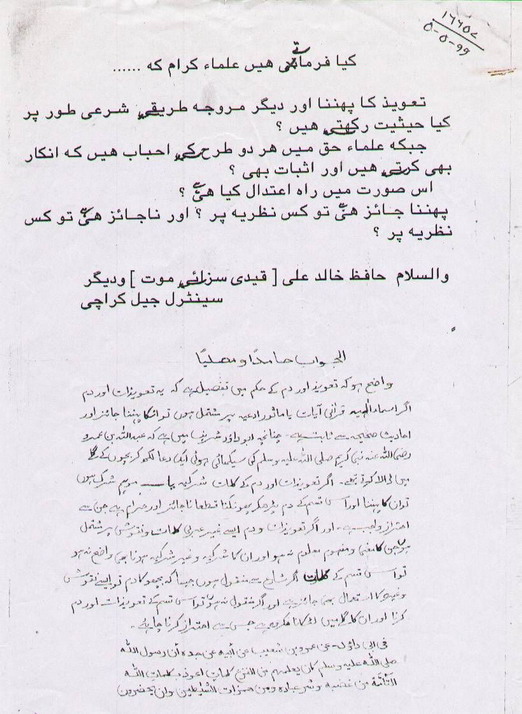 ۱۶۶۵۷
۵-۵-۹۹
کیا فرماتے ھیں علماء کرام کہ ......
تعویذ کا پھننا اور دیگر مروجہ طریقے شرعی طور پر
کیا حیثیت رکھتے ھیں ؟
جبکہ علماء حق میں ھر دو طرح کے احباب ھیں کہ انکار
بھی کرتے ھیں اور اثبات بھی ؟
اس صورت میں راہ اعتدال کیا ھے ؟
پھننا جائز ھے تو کس نظریہ پر ؟ اور ناجائز ھے تو کس
نظریہ پر ؟
والسلام حافظ خالد علی [ قیدی سزائے موت ] ودیگر
سینٹرل جیل کراچی
الجواب حامدًا ومصلیًا
واضح ہو کہ تعویذ اور دم کے حکم میں تفصیل ہے کہ یہ تعویذات اور دم
اگر اسماء الٰہیہ قرآنی آیات یا ماثور ادعیہ پر مشتمل ہوں تو انکا پہننا جائز اور
احادیث صحیحہ سے ثابت ہے۔ چنانچہ ابو داؤد شریف میں ہے کہ عبداللہ بن عمرو
رضی اللہ عنہ نبی کریم صلی اللہ علیہ وسلم کی سیکھائی ہوئی ایک دعا لکھ کر بچوں کے گلے
میں لٹکا تے تھے۔ اگر تعویذات اور دم کے کلمات شرکیہ یا موہم شرک ہوں
تو ان کا پہننا اور اس قسم کے دم پڑھکر پھونکنا قطعًا ناجائز اور حرام ہے جس سے
احتراز واجب ہے۔ اور اگر تعویذات و دم ایسے غیر عربی کلمات و نقوش پر مشتمل
ہوں جن کا معنی و مفہوم معلوم نہ ہو اور ان کا شرکیہ و غیر شرکیہ ہونا بھی واضح نہ ہو
تو اس قسم کے کلمات اگر شارع سے منقول ہوں جیسا کہ بچھو کا دم تو ایسے نقوش
وغیرہ کا استعمال بھی جائز ہے اور اگر منقول نہ ہو تو اس قسم کے تعویذات اور دم
کرنا اور ان کا گلے میں لٹکانا مکروہ ہے جس سے احتراز کرنا چاہیے۔
فی ابی داؤد عن عمرو بن شعیب عن أبیه عن جدہ أن رسول اللہ
صلی اللہ علیہ وسلم کان یعلمهم من الفزع کلمات اعوذ بکلمات اللہ
التامّة من غضبه وشر عبادہ ومن همزات الشیاطین وان یحضرون